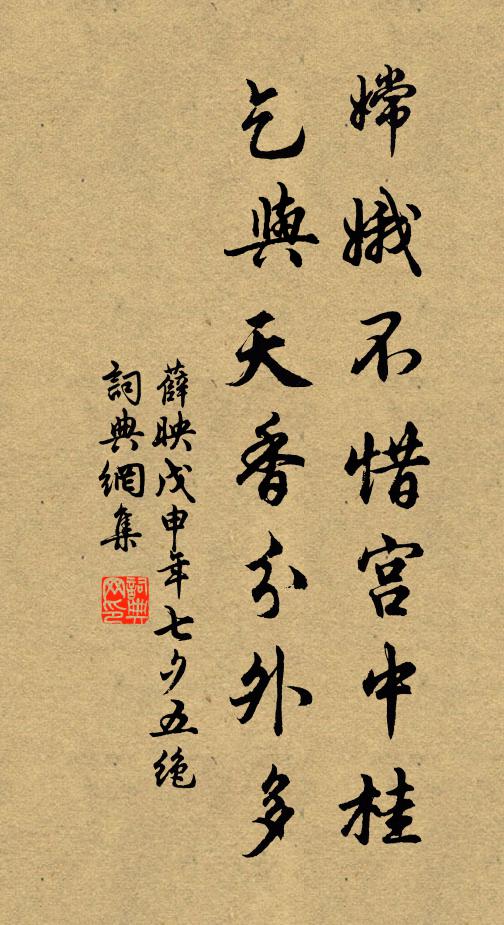 嫦娥不惜宫中桂
乞與天香分外多
薛映戊申年七夕五絶
詞典網集
詞典网印